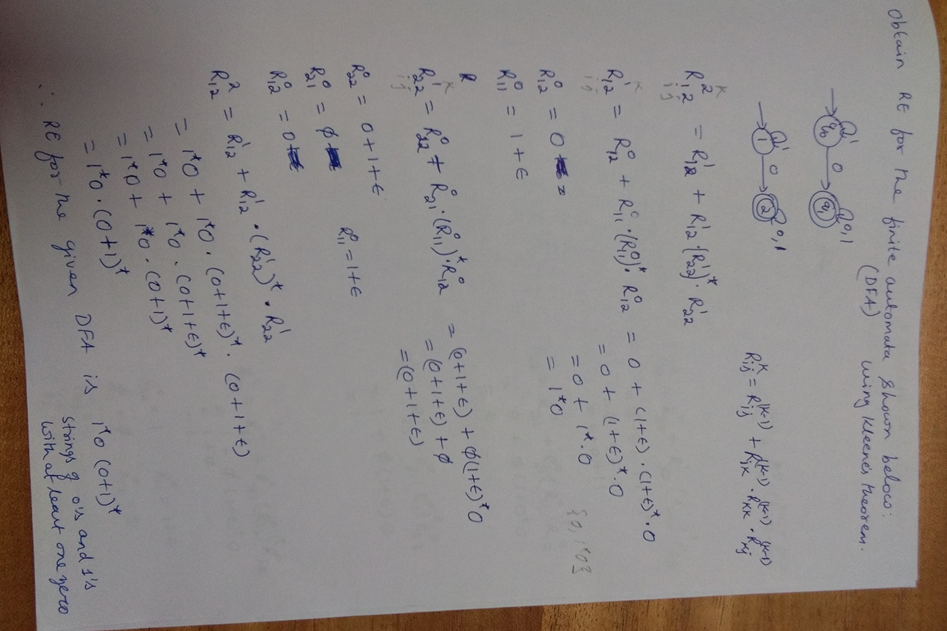 Obtain RE for the finite automata shown below:
(DFA) using Kleene's theorem.
1 0,1
q₀ 0 q₁
1 0,1
1 0 2
Rᵢⱼᵏ = Rᵢⱼ⁽ᵏ⁻¹⁾ + Rᵢₖ⁽ᵏ⁻¹⁾ · Rₖₖ⁽ᵏ⁻¹⁾ · Rₖⱼ⁽ᵏ⁻¹⁾
R₁₂² = R₁₂¹ + R₁₂¹ · (R₂₂¹)* · R₂₂¹
k
i j
R₁₂¹ = R₁₂⁰ + R₁₁⁰ · (R₁₁⁰)* · R₁₂⁰ = 0 + (1+ε) · (1+ε)* · 0
k
i j
= 0 + (1+ε)* · 0
R₁₂⁰ = 0 = 0 + 1* · 0
R₁₁⁰ = 1 + ε = 1*0
{0, 1*0}
R
R₂₂¹ = R₂₂⁰ + R₂₁⁰ · (R₁₁⁰)* · R₁₂⁰ = (0+1+ε) + ϕ(1+ε)*0
k
i j
= (0+1+ε) + ϕ
= (0+1+ε)
R₂₂⁰ = 0+1+ε R₁₁⁰ = 1+ε
R₂₁⁰ = ϕ
R₁₂⁰ = 0
R₁₂² = R₁₂¹ + R₁₂¹ · (R₂₂¹)* · R₂₂¹
= 1*0 + 1*0 · (0+1+ε)* · (0+1+ε)
= 1*0 + 1*0 · (0+1+ε)*
= 1*0 + 1*0 · (0+1)*
= 1*0 · (0+1)*
∴ RE for the given DFA is 1*0 (0+1)*
strings of 0's and 1's
with at least one zero